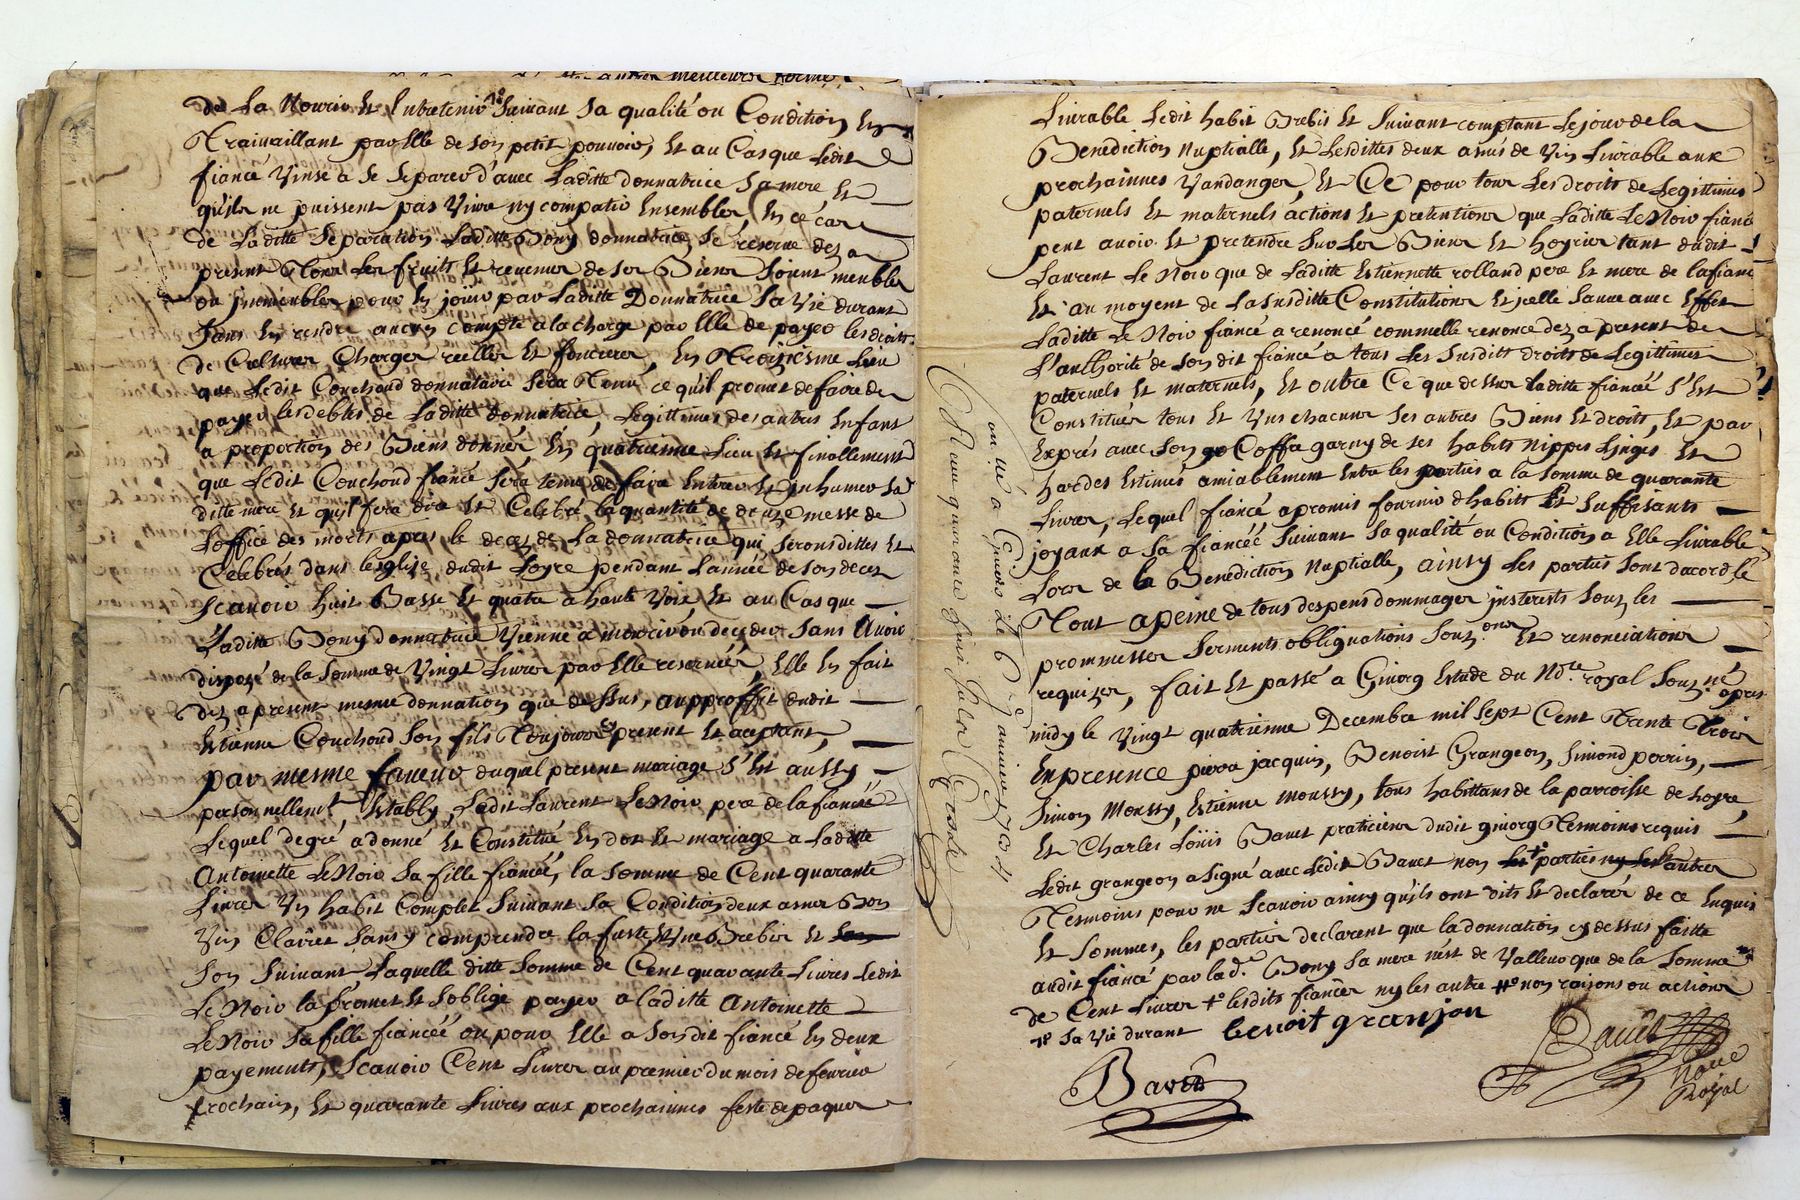 de La Nourir Et Entretenir Suivant sa qualité ou Condition En
Travaillant par Elle de son petit pouvoir, Et au Cas que Ledit
fiancé Vinse a se separer d'avec Laditte donnatrice sa mere Et
qu'ils ne puissent pas Vivre ny compatir Ensembles, En cé cas
de Laditte Separation Laditte Bony donnatrice se reserve dez a
present Tous Les fruits Et revenus de ses Biens soient meubles
ou jmmeubles pour En jouir par Laditte Donnatrice sa Vie durant
sans En rendre aucun compte a la charge par Elle de payer les droits
de Cultures, Charges reelles Et foncieres, En Troisiesme Lieu
que Ledit Couchoud donnataire sera Tenu ce qu'il promet de faire de
payer les debtes de Laditte donnatrice, Legittimes des autres Enfans
a proportion des Biens donnés En quatrieme Lieu Et finallement
que Ledit Couchoud fiancé sera tenu de faire Entrer Et jnhumer sa
ditte mere Et qu'il fera dire Et Celebré la quantité de douze messe de
L'office des morts apres le decez de La donnatrice qui seronsdittes Et
Celebrés dans lesglise dudit Soyre pendant L'année de son decez
scavoir huit Basse Et quatre a haute Voix Et au Cas que
Laditte Bony donnatrice Vienne a mourir ou deceder sans Avoir
disposé de la somme de Vingt Livres par Elle reservéé, Elle En fait
dez a present mesme donnation que dessus, au proffit dudit
Estienne Couchoud son fils Toujours present Et aceptant,
par mesme faveur duquel present mariage s'Est aussy
personnellemt Establÿ, Ledit Laurent Le Noir pere de la fiancéé
Lequel de gré a donné Et Constitué En dot Et mariage a Laditte
Antoinette Le Noir sa fille fiancéé, la somme de Cent quarante
Livres Un habit Complet suivant sa Condition deux asnés Bon
Vin Clairet sansy comprendre la fuste, Une Brebis Et
son suivant Laquelle ditte somme de Cent quarante Livres Ledit
Le Noir la Promet Et s'oblige payer a laditte Antoinette
Le Noir sa fille fiancéé ou pour Elle a son dit fiancé En deux
payements, Scavoir Cent Livres au premier du mois de fevrier
prochain, Et quarante Livres aux prochainnes feste de paques
Livrable Ledit habit Brebis Et suivant comptant Le jour de la
Benediction Nuptialle, Et Lesdittes deux asnés de Vin Livrable aux
prochainnes Vandanges, Et Ce pour tous Les droits de Legittimes
paternels Et maternels actions Et pretentions que Laditte Le Noir fiancé
peut avoir Et pretendre sur Les Biens Et hoyries tant dudit
Laurent Le Noir que de Laditte Estiennette rolland pere Et mere de la fiancé
Et au moyent de La susditte Constitutions Et jcelle sauve avec Effet
Laditte Le Noir fiancé a renoncé comm'elle renonce dez a present de
L'authorité de son dit fiancé a tous Les susdits droits de Legittimes
paternels Et maternels, Et outre Ce que dessus Laditte fiancéé s'Est
Constituer tous Et Uns chacuns ses autres Biens Et droits, Et par
Exprés avec son Coffre garny de ses habits Nippes Linges Et
hardes Estimés amiablement Entre les parties a la somme de quarante
Livres, Lequel fiancé a promis fournir d'habits Et suffisants
joyaux a sa fiancéé suivant sa qualité ou Condition a Elle Livrable
Lors de la Benediction Nuptialle, ainsy Les parties sont d'acord Le
Tout a peine de tous despens dommages jnsterets sous les
prommesses serments obligations sous.ons Et renonciations
requizes, fait Et passé a Givorg Estude du No.re royal sous.né apres
midy le Vingt quatrieme Decembre mil sept Cent Trente Trois
En presence pierre jacquin, Benoist Grangeon, Simond perrin,
Simon Moussy, Estienne moussy, tous habittans de la parroisse de Soyre,
Et Charles Loüis Bavet praticiens dudit givorg Tesmoins requis
Ledit grangeon a signé avec Ledit Bavet non parties autres
Tesmoins pour ne Scavoir ainsy qu'ils ont dits Et declarér de ce Enquis
Et Sommes, les parties declarent que la donnation cy dessus faitte
audit fiancé par lad.e Bony sa mere n'est de Valleur que de la somme
de Cent Livres +o lesdits fiancés ny les autre non raisons ou actions
sa Vie durant benoit granjon
Bavet
Bavet
No.re
Royal
on né a Givors Le 6 Janvier 1734